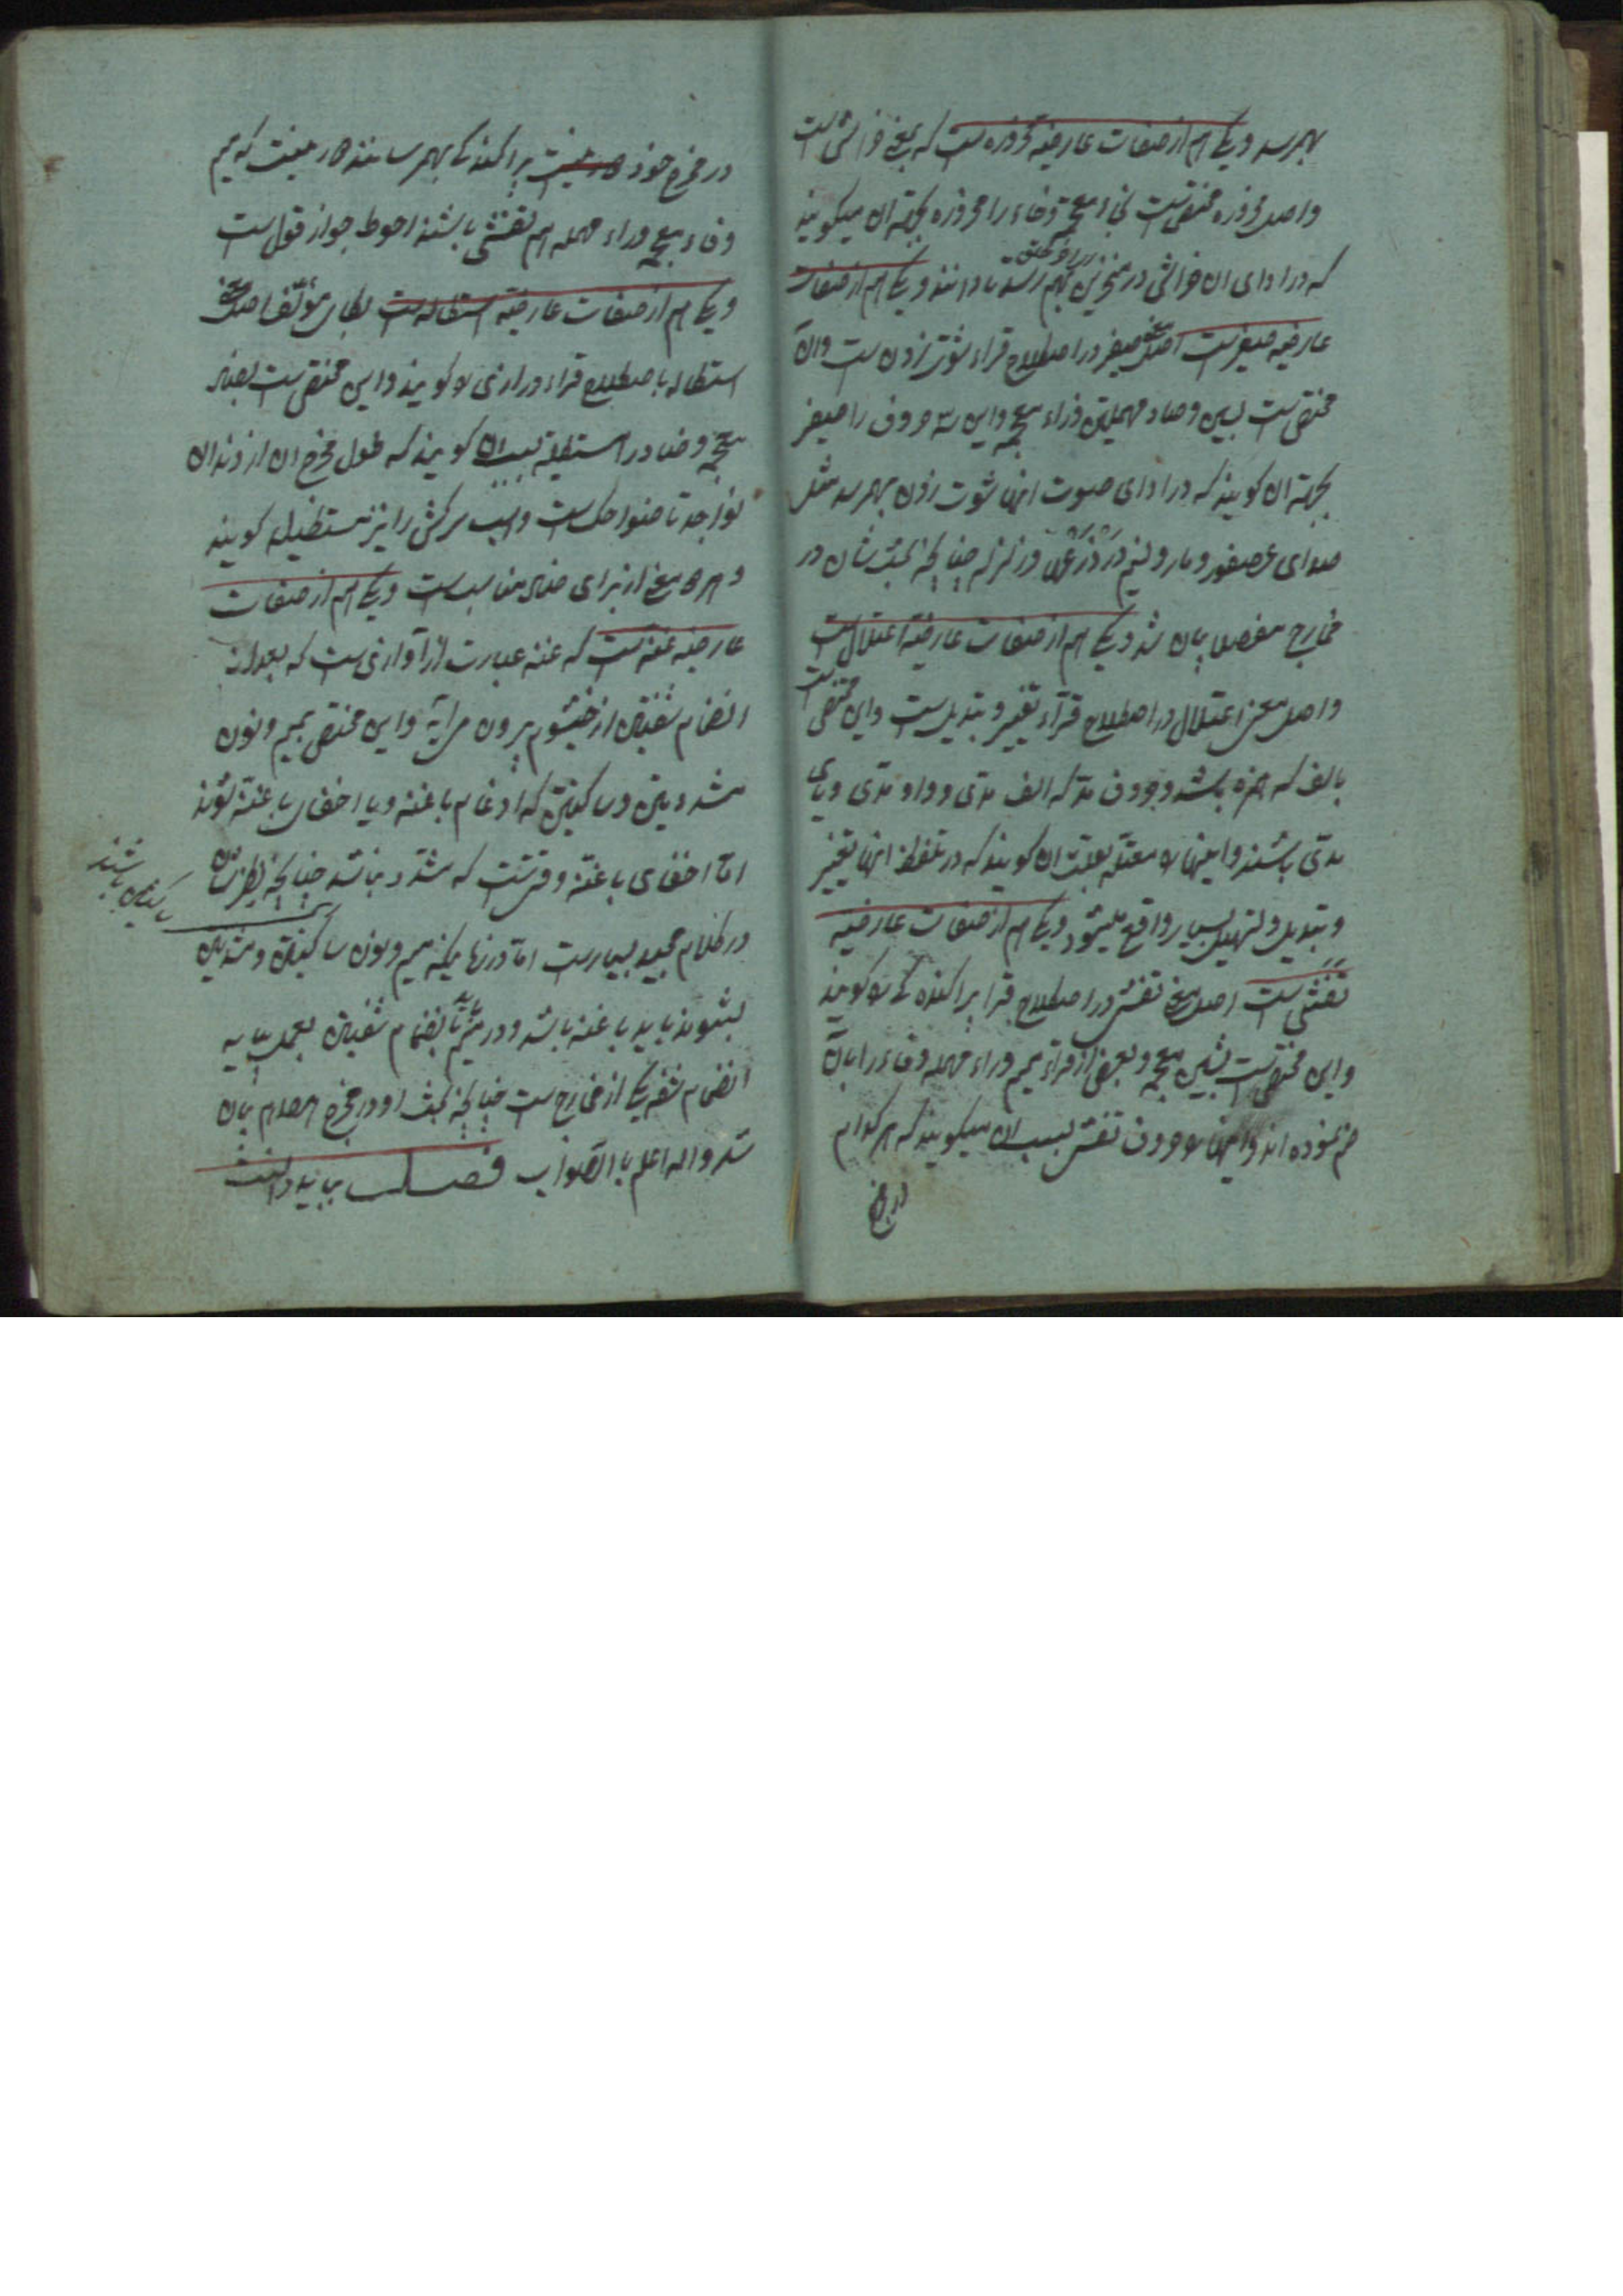 بهمرسد و یکی هم از صفات عارضیه است که بمعنی خراش است
واصل مختص است بخاء معجمه و خاء را بجهة ان میکویند
که در ادای ان خراش در بهم رسد تا دانند و یکی هم از صفات
عارضیه صفیر است اصل معنی صفیر در اصطلاح قراء زدن ست وان
مختص است بسین و صاد مهملتین و زاء معجمه و این سه حروف را صفیر
بجهة ان کویند که در ادای صوت انها زدن بهمرسد مثل
صدای عصفور و مار و در چنانچه بحث شان در
مخارج مفصلا بیان شد و یکی هم از صفات عارضیه اعتلال ست
واصل معنی اعتلال در اصطلاح قراء تغییر و تبدیل ست و این مختص است
بالف که همزه باشد و بحروف مد که الف مدی و واو مدی و یای
مدی باشند و اینها را معتله بعلت ان کویند که در تلفظ انها تغییر
و تبدیل و تسهیل بسیار واقع میشود و یکی هم از صفات عارضیه
تفشی ست اصل معنی تفشی در اصطلاح قرا پراکنده کی را کویند
و این مختص است بشین معجمه و بعضی از قراء میم و راء مهمله و فاء را بان
ضم نموده اند و اینها را حروف تفشی بسبب ان میکویند که هر کدام
در مخرج
در مخرج خود پراکنده کی بهمرسانند میم
و فاء معجمه و راء مهمله هم تفشی باشند احوط جواز قول ست
و یکی هم از صفات عارضیه استطاله ست مؤلف اصل معنی
استطاله باصطلاح قراء درازی را کویند و این مختص است بضاد
معجمه و ضاد را مستطیله بسبب ان کویند که طول مخرج ان از دندان
نواجد تا ضواحک است و اسب سرکش را نیز مستطیله کویند
و هر دو معنی از برای ضاد مناسب است و یکی هم از صفات
عارضیه غنه ست که غنه عبارت از آوازی ست که بعد از
انضام شفتین از خیشوم بیرون می آید و این مختص بمیم و نون
مشددتین و ساکنتین که ادغام با غنه و یا اخفای با غنه شوند
اما اخفای با غنه وقتیست که مشدد نباشد چنانچه
ساکنین باشند
در کلام مجید بسیارست اما در زمانیکه میم و نون ساکنتین و مشددتین
بشوند باید با غنه باشد و در میم انضمام شفتین بعمل بیاید
انضمام شفه یکی از مخارج ست چنانچه بحث او در مخرج بیان
شد و الله اعلم باالصواب فصل بباید دانست